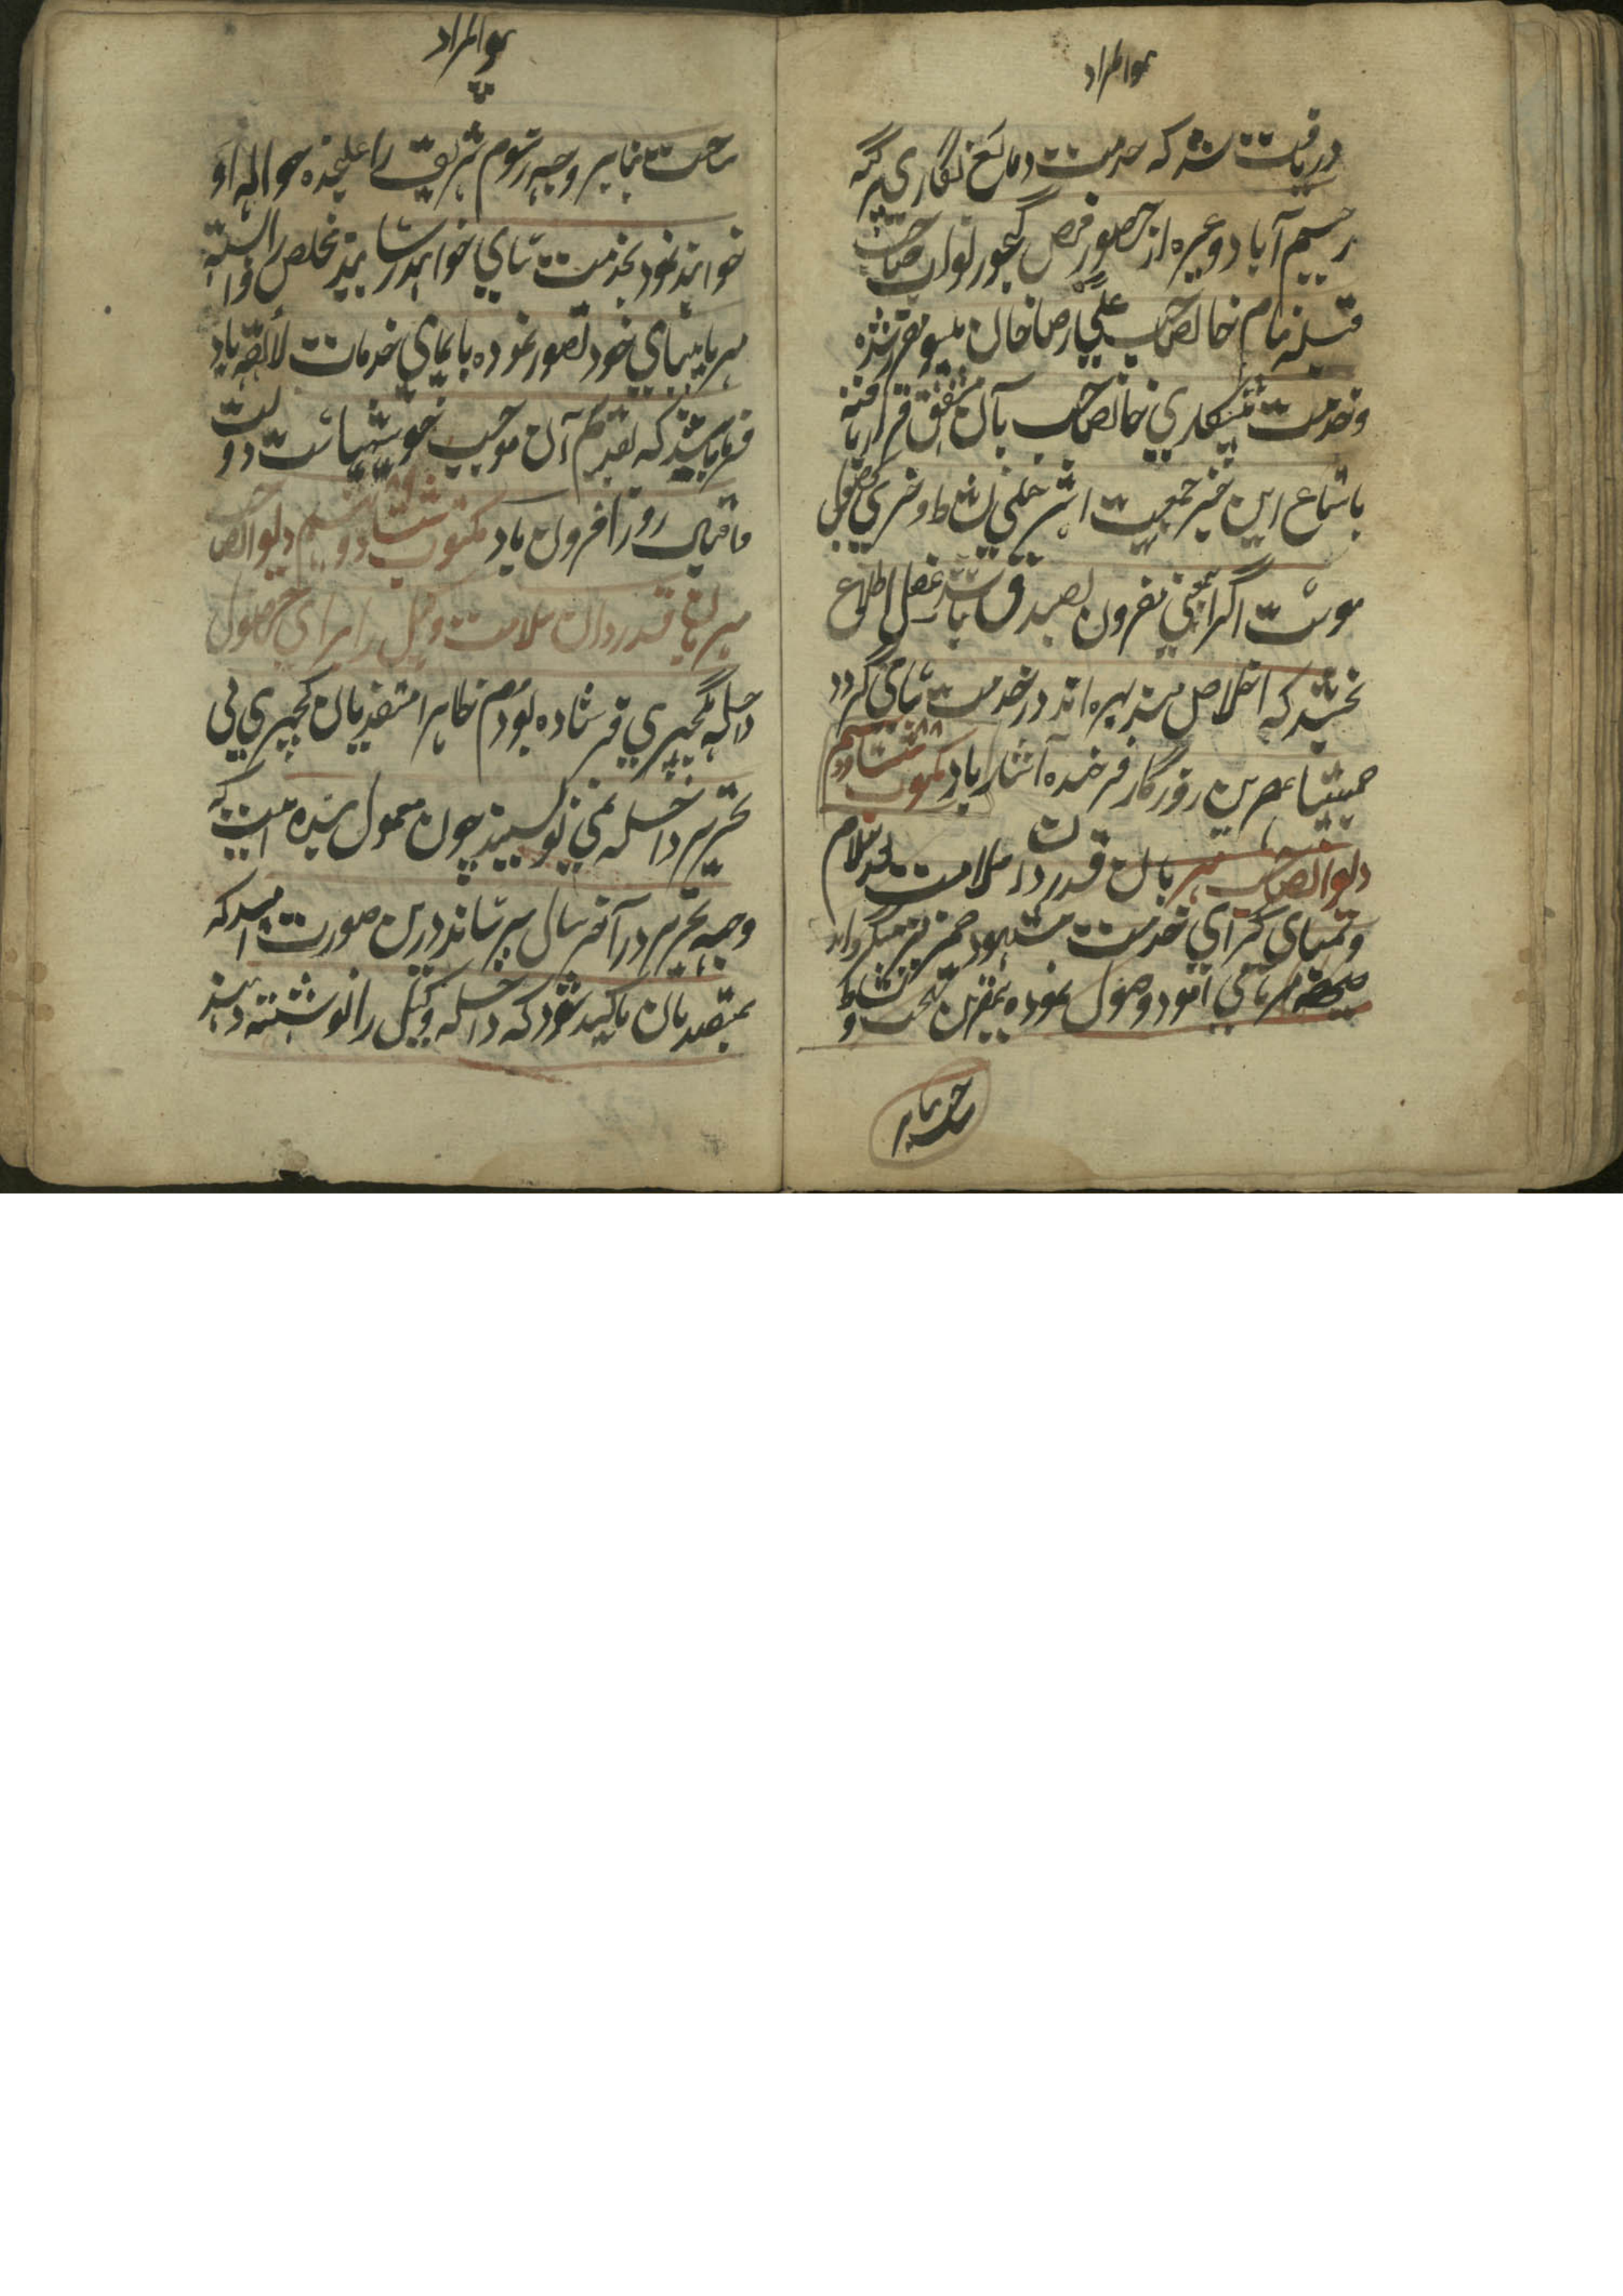 هوالمراد
دریافت شد که خدمت وقایع نگاری پرگنه
رحیم آباد وغیره از حضور فیض گنجور نواب صاحب
قبله بنام خانصاحب علی رضا خان مقرر شده
وخدمت پیشکاری خانصاحب بآن مشفق قرار یافته
باستماع این خبر جمعیت اثر خیلی نشاط و خرمی حصول
پیوست اگر اینمعنی مقرون بصدق باشد مفصل اطلاع
بخشند که اخلاص مند بهره اندوز خدمت سامی گردد
همیشه روزگار فرخنده آثار باد مکتوب هشتاد ودوم
دیوانصاحب مهربان قدردان سلامت بعد سلام
وتمنای گرامی خدمت مشهود ضمیر منیر میگرداند
صحیفه مهربانی آمود وصول نموده بهجت و نشاط
ساخت بنابر
هوالمراد
ساخت بنابر وجه رسوم شریف را علیحده حواله او
خواهند نمود بخدمت سامی خواهد رسانید مخلص را
مهربانیهای خود تصور نموده بایمای خدمات لائقه یاد
فرمایند که تقدیم آن موجب خوشیهاست دولت
واقبال روز افزون باد مکتوب هشتاد وسیم دیوانصاحب
مهربان قدردان سلامت وکیل را برای حصول
داخله بکچهری فرستاده بودم ظاهرا متصدیان کچهری بی
تحریر داخله نمی نویسند چون معمول بنده است که
وجه تحریر در آخر سال میرساند درین صورت امید که
بمتصدیان تاکید شود که داخله وکیل را نوشته دهند